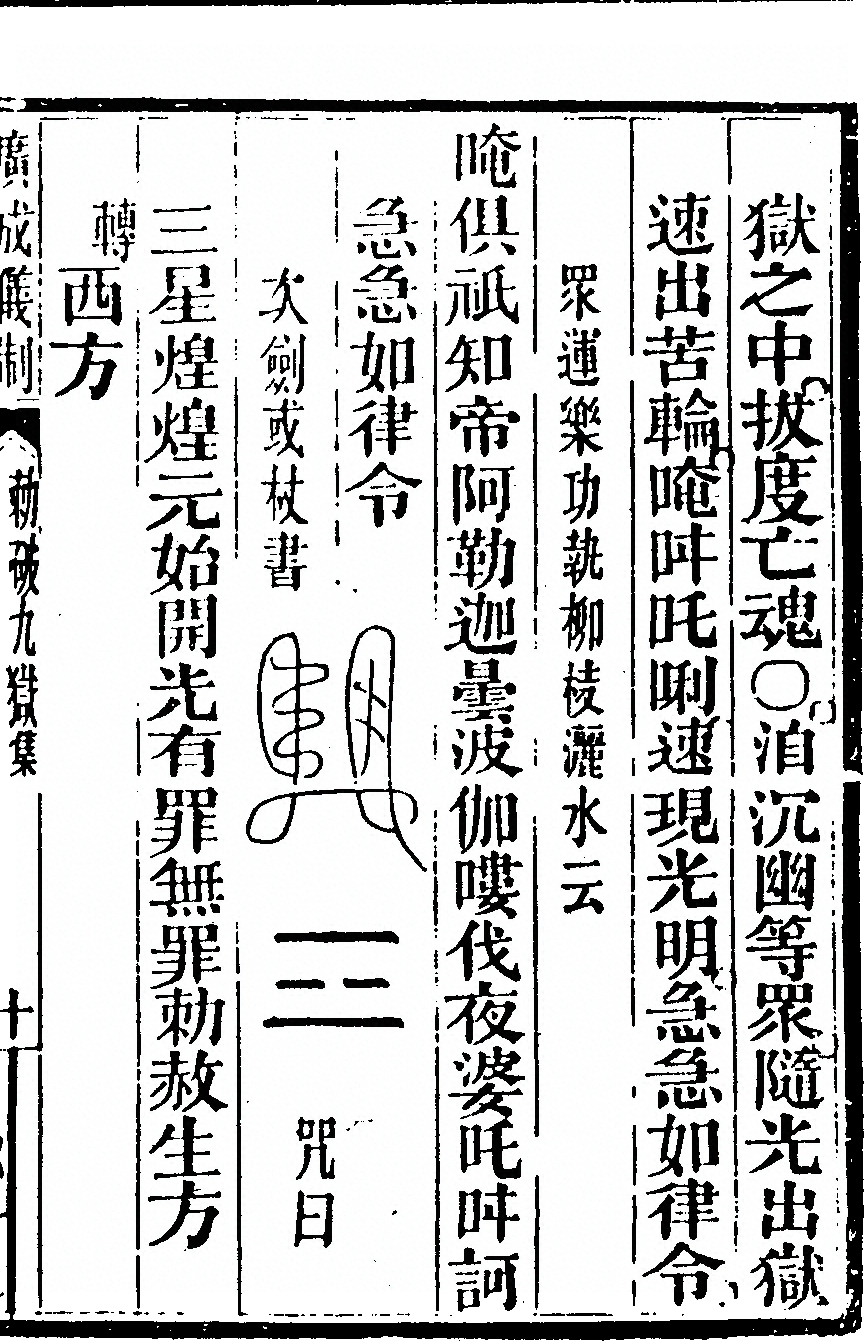 獄之中拔度亡魂〇洎沉幽等眾隨光出獄
速出苦輪唵吽吒唎速現光明急急如律令
眾運樂功執柳枝灑水云
唵俱祇知帝阿勒迦曇波伽嘍伐夜婆吒吽訶
急急如律令
次劍或杖書
咒曰
三星煌煌元始開光有罪無罪勅赦生方
轉西方
廣成儀制
勅破九獄集
十